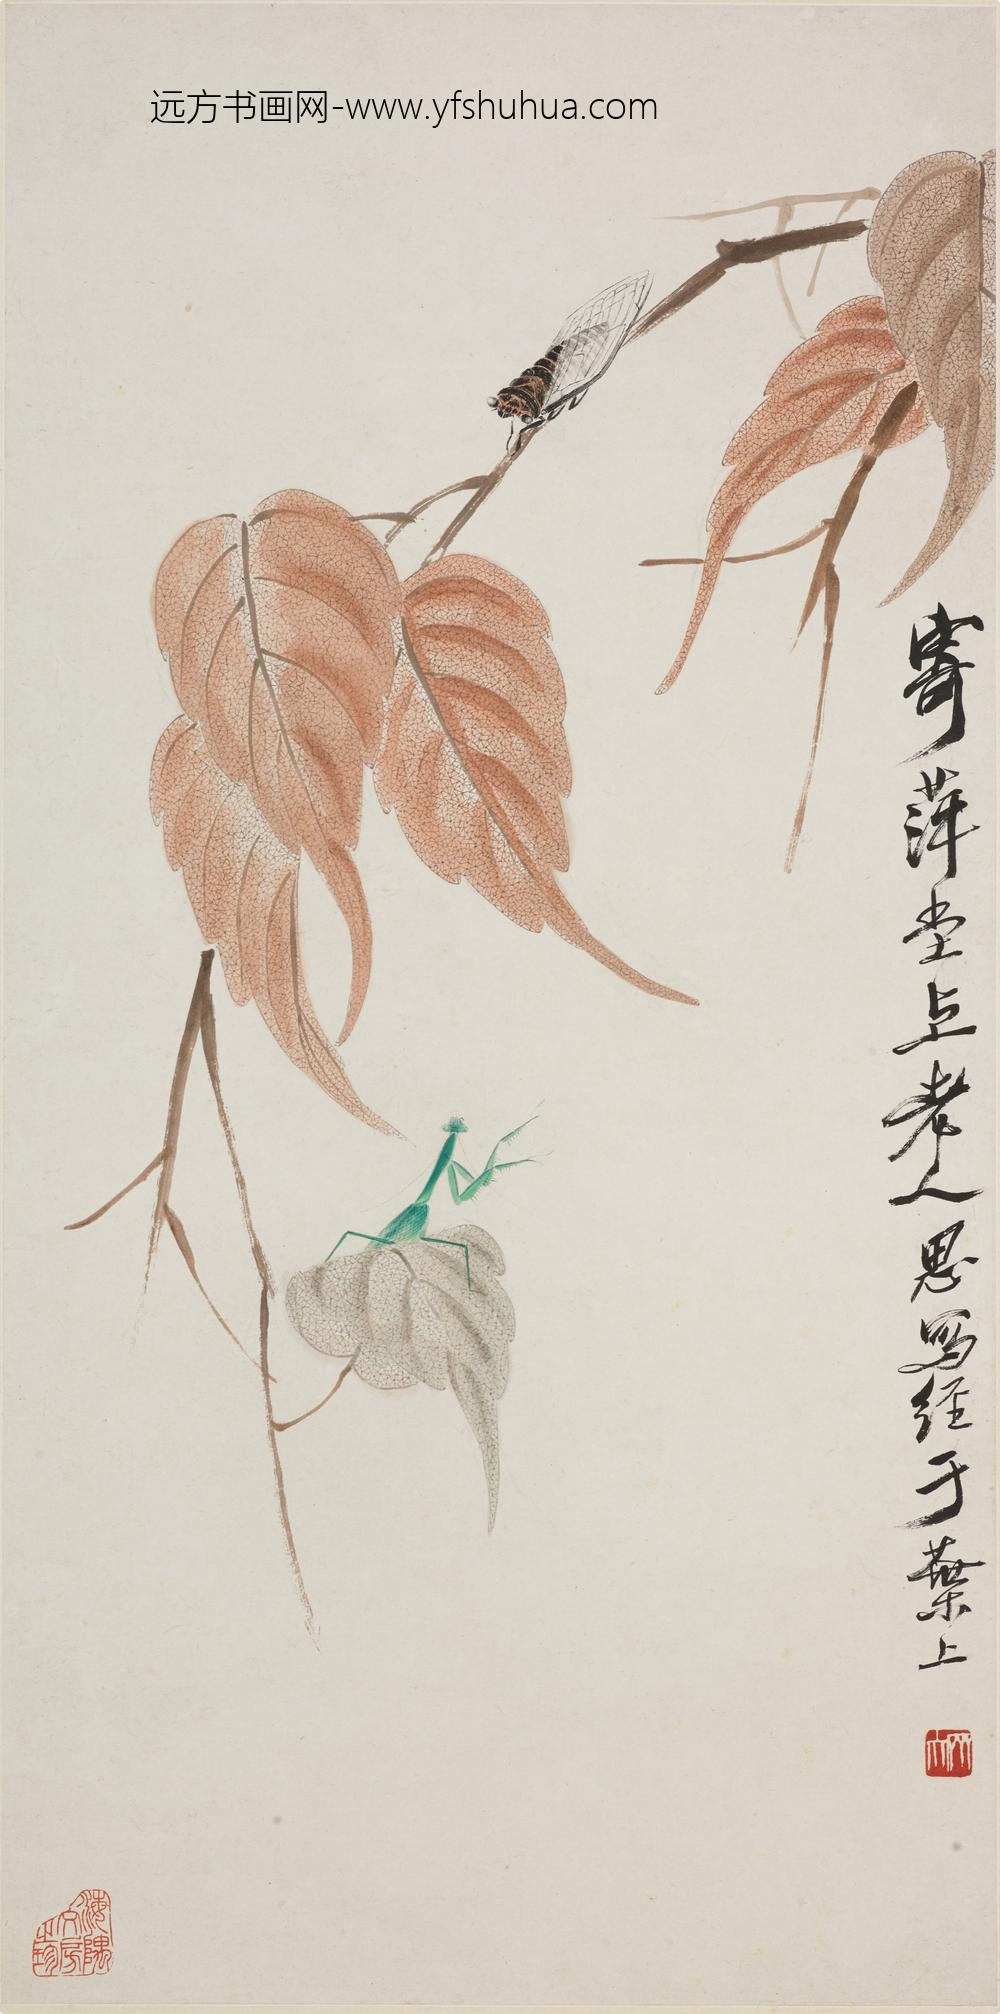 远方书画网-www.yfshuhua.com
寄萍堂上老人思写经于葉上